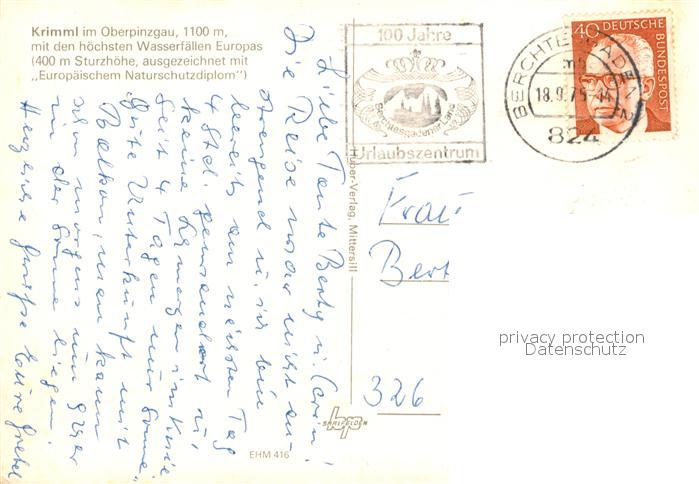 Krimml im Oberpinzgau, 1100 m,
mit den höchsten Wasserfällen Europas
(400 m Sturzhöhe, ausgezeichnet mit
„Europäischem Naturschutzdiplom")
100 Jahre
Berchtesgadener Land
Urlaubszentrum
40 DEUTSCHE
BUNDESPOST
BERCHTESGADEN
18.9.75-14
824
Liebe Tante Berty u. Carin!
Die Reise war nicht an-
strengend u. ich bin
bereits am nächsten Tag
4 Std. gewandert u.
keine Schmerzen im Knie.
Seit 4 Tagen nur Sonne,
gute Unterkunft mit
Balkon, man kann
schon morgens um 9 Uhr
in der Sonne liegen.
Herzliche Grüße Eure Gretel
Huber-Verlag, Mittersill
Frau
Bert
326
SAALFELDEN
EHM 416
privacy protection
Datenschutz